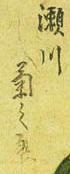 瀬川
菊之丞